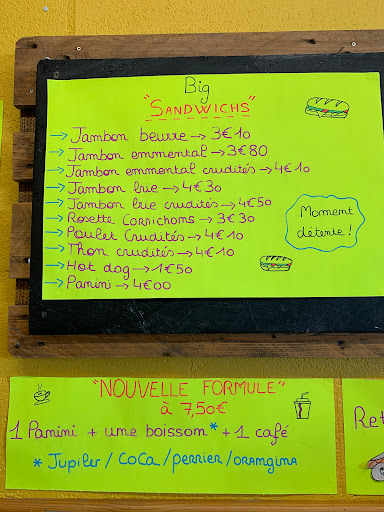 Big
"SANDWICHS"
→ Jambon beurre → 3€10
→ Jambon emmental → 3€80
→ Jambon emmental crudités → 4€10
→ Jambon brie → 4€30
→ Jambon brie crudités → 4€50
→ Rosette Cornichons → 3€30
→ Poulet Crudités → 4€10
→ Thon crudités → 4€10
→ Hot dog → 1€50
→ Panini → 4€00
Moment
détente !
"NOUVELLE FORMULE"
à 7,50€
1 Panini + une boisson* + 1 café
* Jupiler / COCA / perrier / orangina
Ret